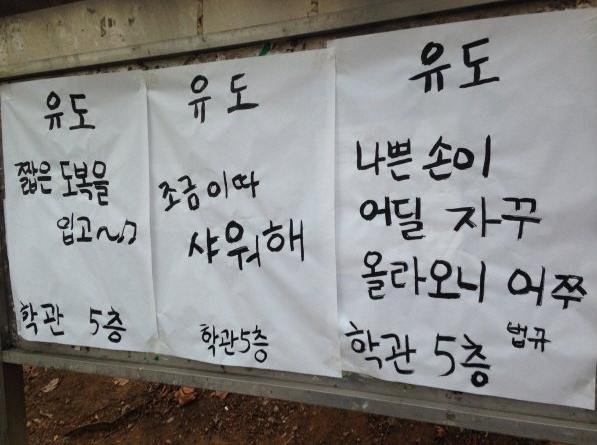 유도
짧은 도복을
입고~♪
학관 5층
유도
조금이따
샤워해
학관5층
유도
나쁜 손이
어딜 자꾸
올라오니 어쭈
법규
학관 5층